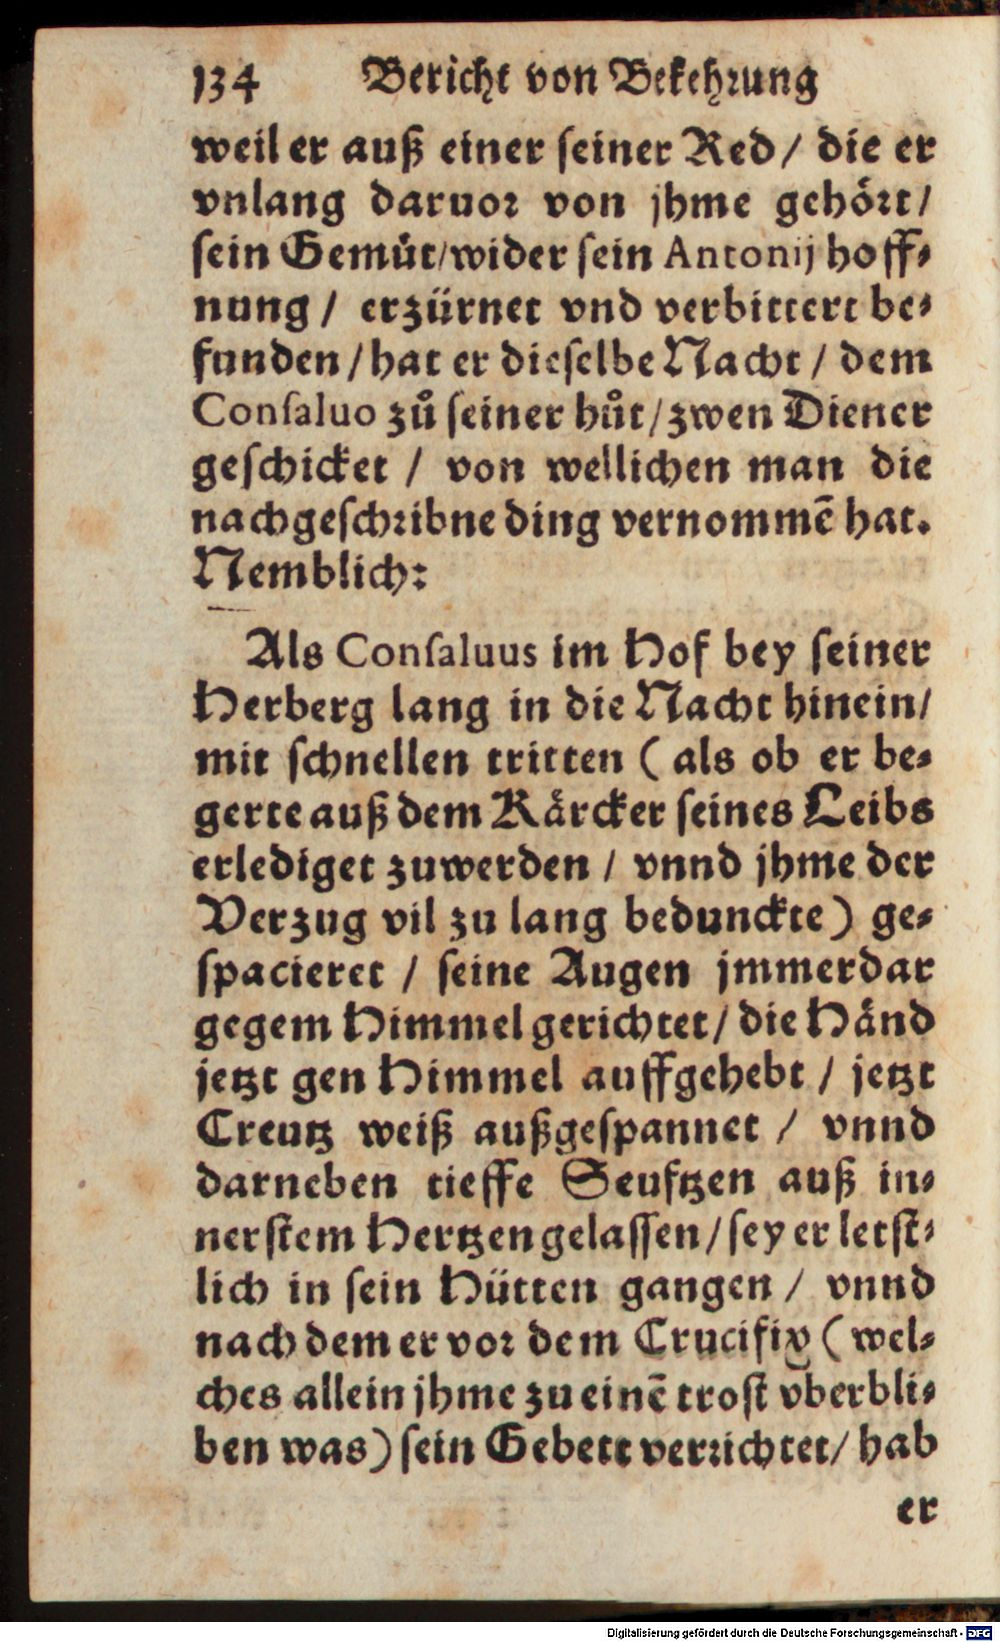 134 Bericht von Bekehrung
weil er auß einer seiner Red / die er
vnlang daruor von jhme gehört /
sein Gemüt / wider sein Antonij hoff-
nung / erzürnet vnd verbittert be-
funden / hat er dieselbe Nacht / dem
Consaluo zů seiner hůt / zwen Diener
geschicket / von wellichen man die
nachgeschribne ding vernommē hat.
Nemblich:
Als Consaluus im Hof bey seiner
Herberg lang in die Nacht hinein /
mit schnellen tritten ( als ob er be-
gerte auß dem Kärcker seines Leibs
erlediget zuwerden / vnnd jhme der
Verzug vil zu lang bedunckte ) ge-
spacieret / seine Augen jmmerdar
gegem Himmel gerichtet / die Händ
jetzt gen Himmel auffgehebt / jetzt
Creutz weiß außgespannet / vnnd
darneben tieffe Seufftzen auß in-
nerstem Hertzen gelassen / sey er letst-
lich in sein Hütten gangen / vnnd
nach dem er vor dem Crucifix ( wel-
ches allein jhme zu einē trost vberbli-
ben was ) sein Gebett verrichtet / hab
er
Digitalisierung gefördert durch die Deutsche Forschungsgemeinschaft - DFG